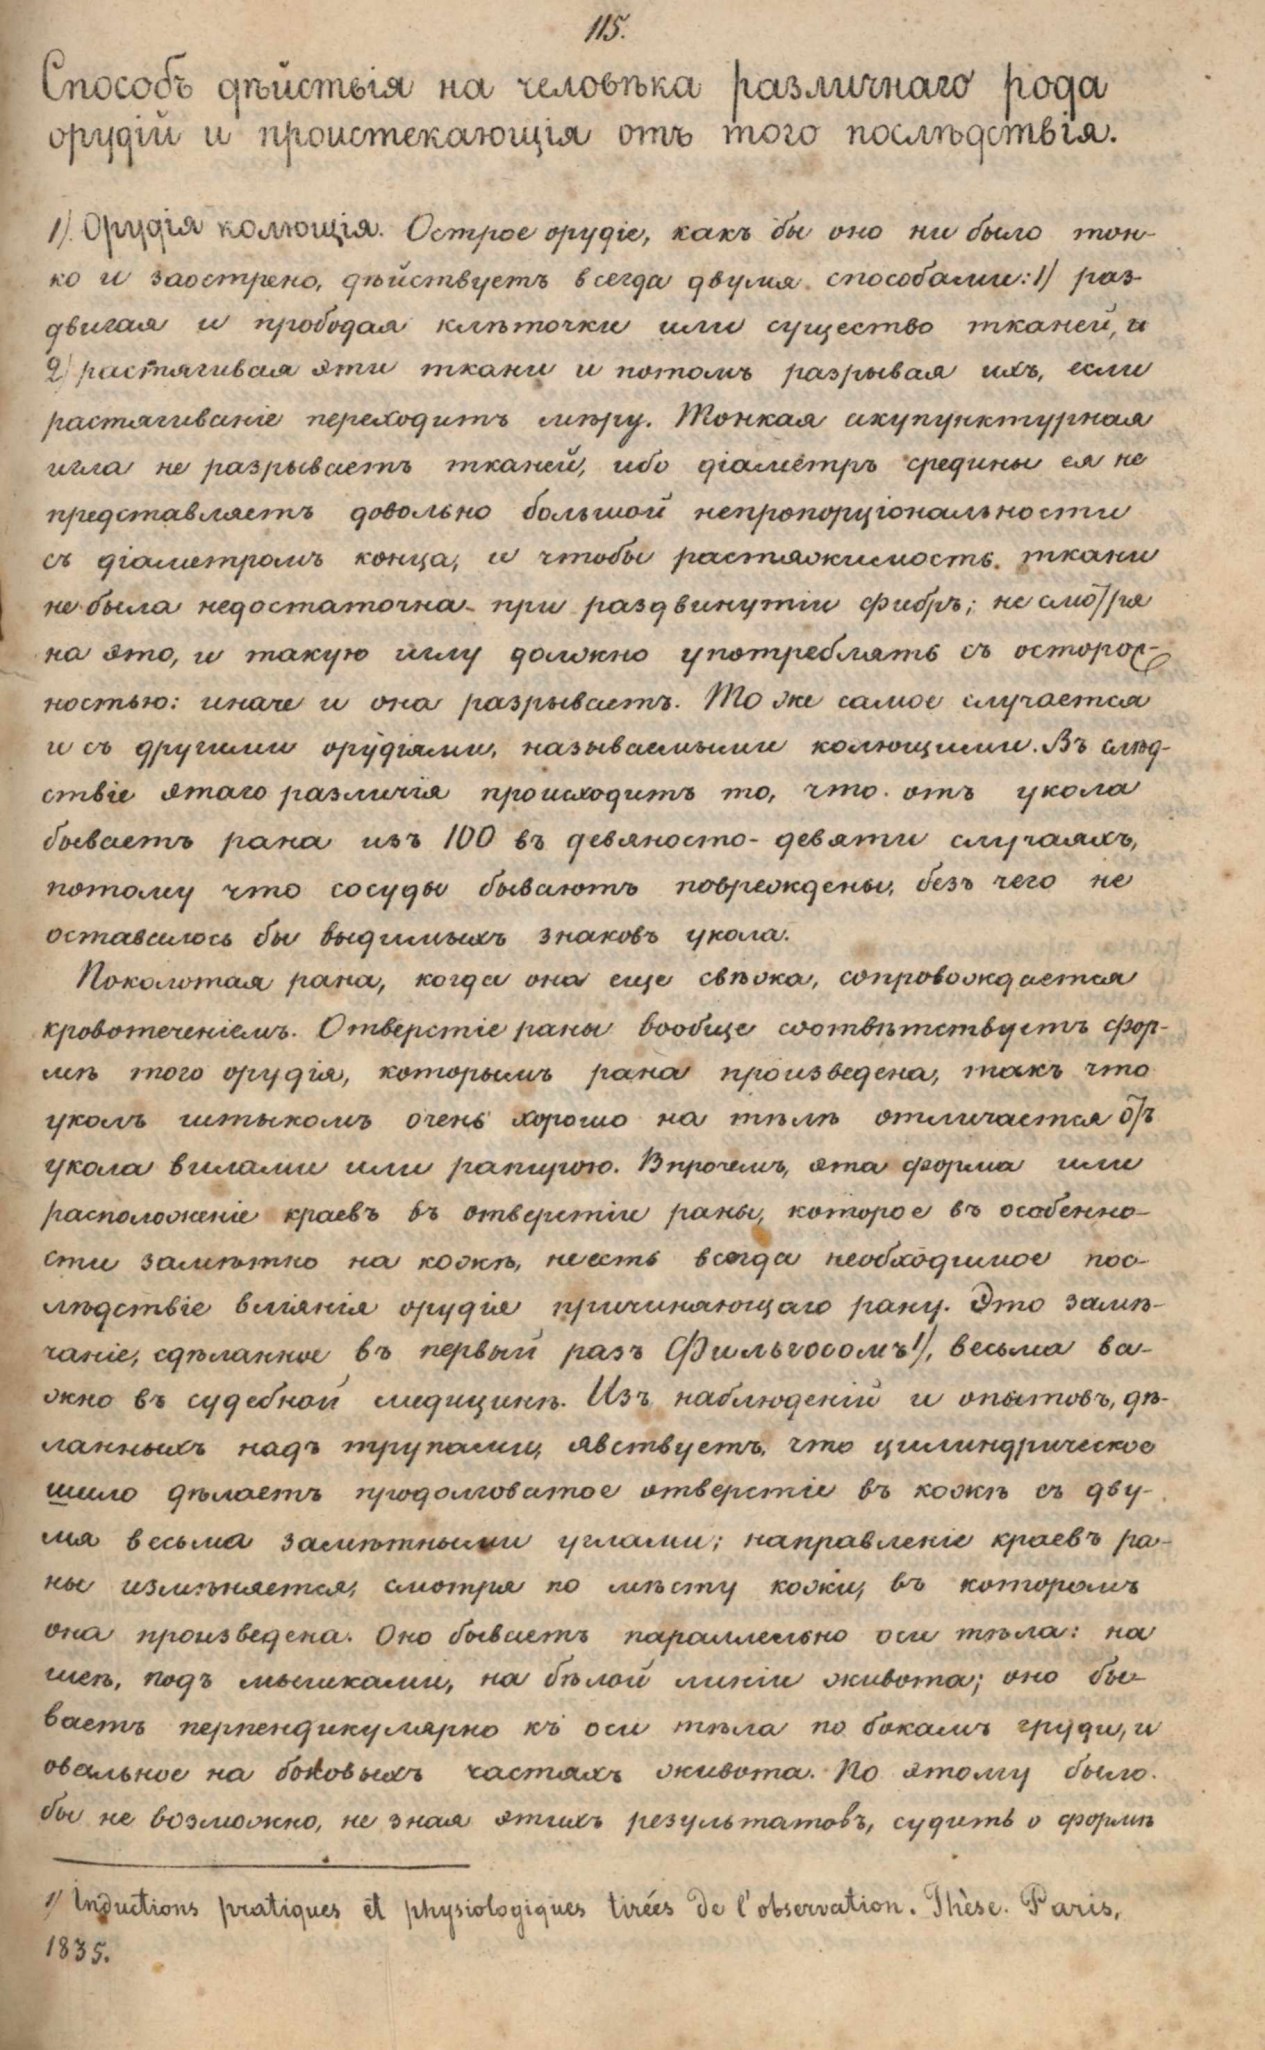 115.
Способъ дѣйствія на человѣка различнаго рода
орудій и проистекающія отъ того послѣдствія.
1). Орудія колющія. Острое орудіе, какъ бы оно ни было тон-
ко и заострено, дѣйствуетъ всегда двумя способами: 1) раз-
двигая и прободая клѣточки или существо тканей, и
2) растягивая эти ткани и потомъ разрывая ихъ, если
растягиваніе переходитъ мѣру. Тонкая акупунктурная
игла не разрываетъ тканей, ибо діаметръ средины ея не
представляетъ довольно большой непропорціональности
съ діаметромъ конца, и чтобы растяжимость ткани
не была недостаточна при раздвинутіи фибръ; не смотря
на это, и такую иглу должно употреблять съ осторож-
ностью: иначе и она разрываетъ. То же самое случается
и съ другими орудіями, называемыми колющими. Въ слѣд-
ствіе этаго различія происходитъ то, что отъ укола
бываетъ рана изъ 100 въ девяносто-девяти случаяхъ,
потому что сосуды бываютъ повреждены, безъ чего не
оставалось бы видимыхъ знаковъ укола.
Поколотая рана, когда она еще свѣжа, сопровождается
кровотеченіемъ. Отверстіе раны вообще соотвѣтствуетъ фор-
мѣ того орудія, которымъ рана произведена, такъ что
уколъ штыкомъ очень хорошо на тѣлѣ отличается отъ
укола вилами или рапирою. Впрочемъ, эта форма или
расположеніе краевъ въ отверстіи раны, которое въ особенно-
сти замѣтно на кожѣ, не есть всегда необходимое пос-
лѣдствіе вліянія орудія причиняющаго рану. Это замѣ-
чаніе, сдѣланное въ первый разъ Фильгосомъ 1), весьма ва-
жно въ судебной медицинѣ. Изъ наблюденій и опытовъ, дѣ-
ланныхъ надъ трупами, явствуетъ, что цилиндрическое
шило дѣлаетъ продолговатое отверстіе въ кожѣ съ дву-
мя весьма замѣтными углами; направленіе краевъ ра-
ны измѣняется, смотря по мѣсту кожи, въ которомъ
она произведена. Оно бываетъ параллельно оси тѣла: на
шеѣ, подъ мышками, на бѣлой линіи живота; оно бы-
ваетъ перпендикулярно къ оси тѣла по бокамъ груди, и
овальное на боковыхъ частяхъ живота. По этому было
бы не возможно, не зная этихъ результатовъ, судить о формѣ
1) Inductions pratiques et physiologiques tirées de l'observation. Thèse. Paris,
1835.